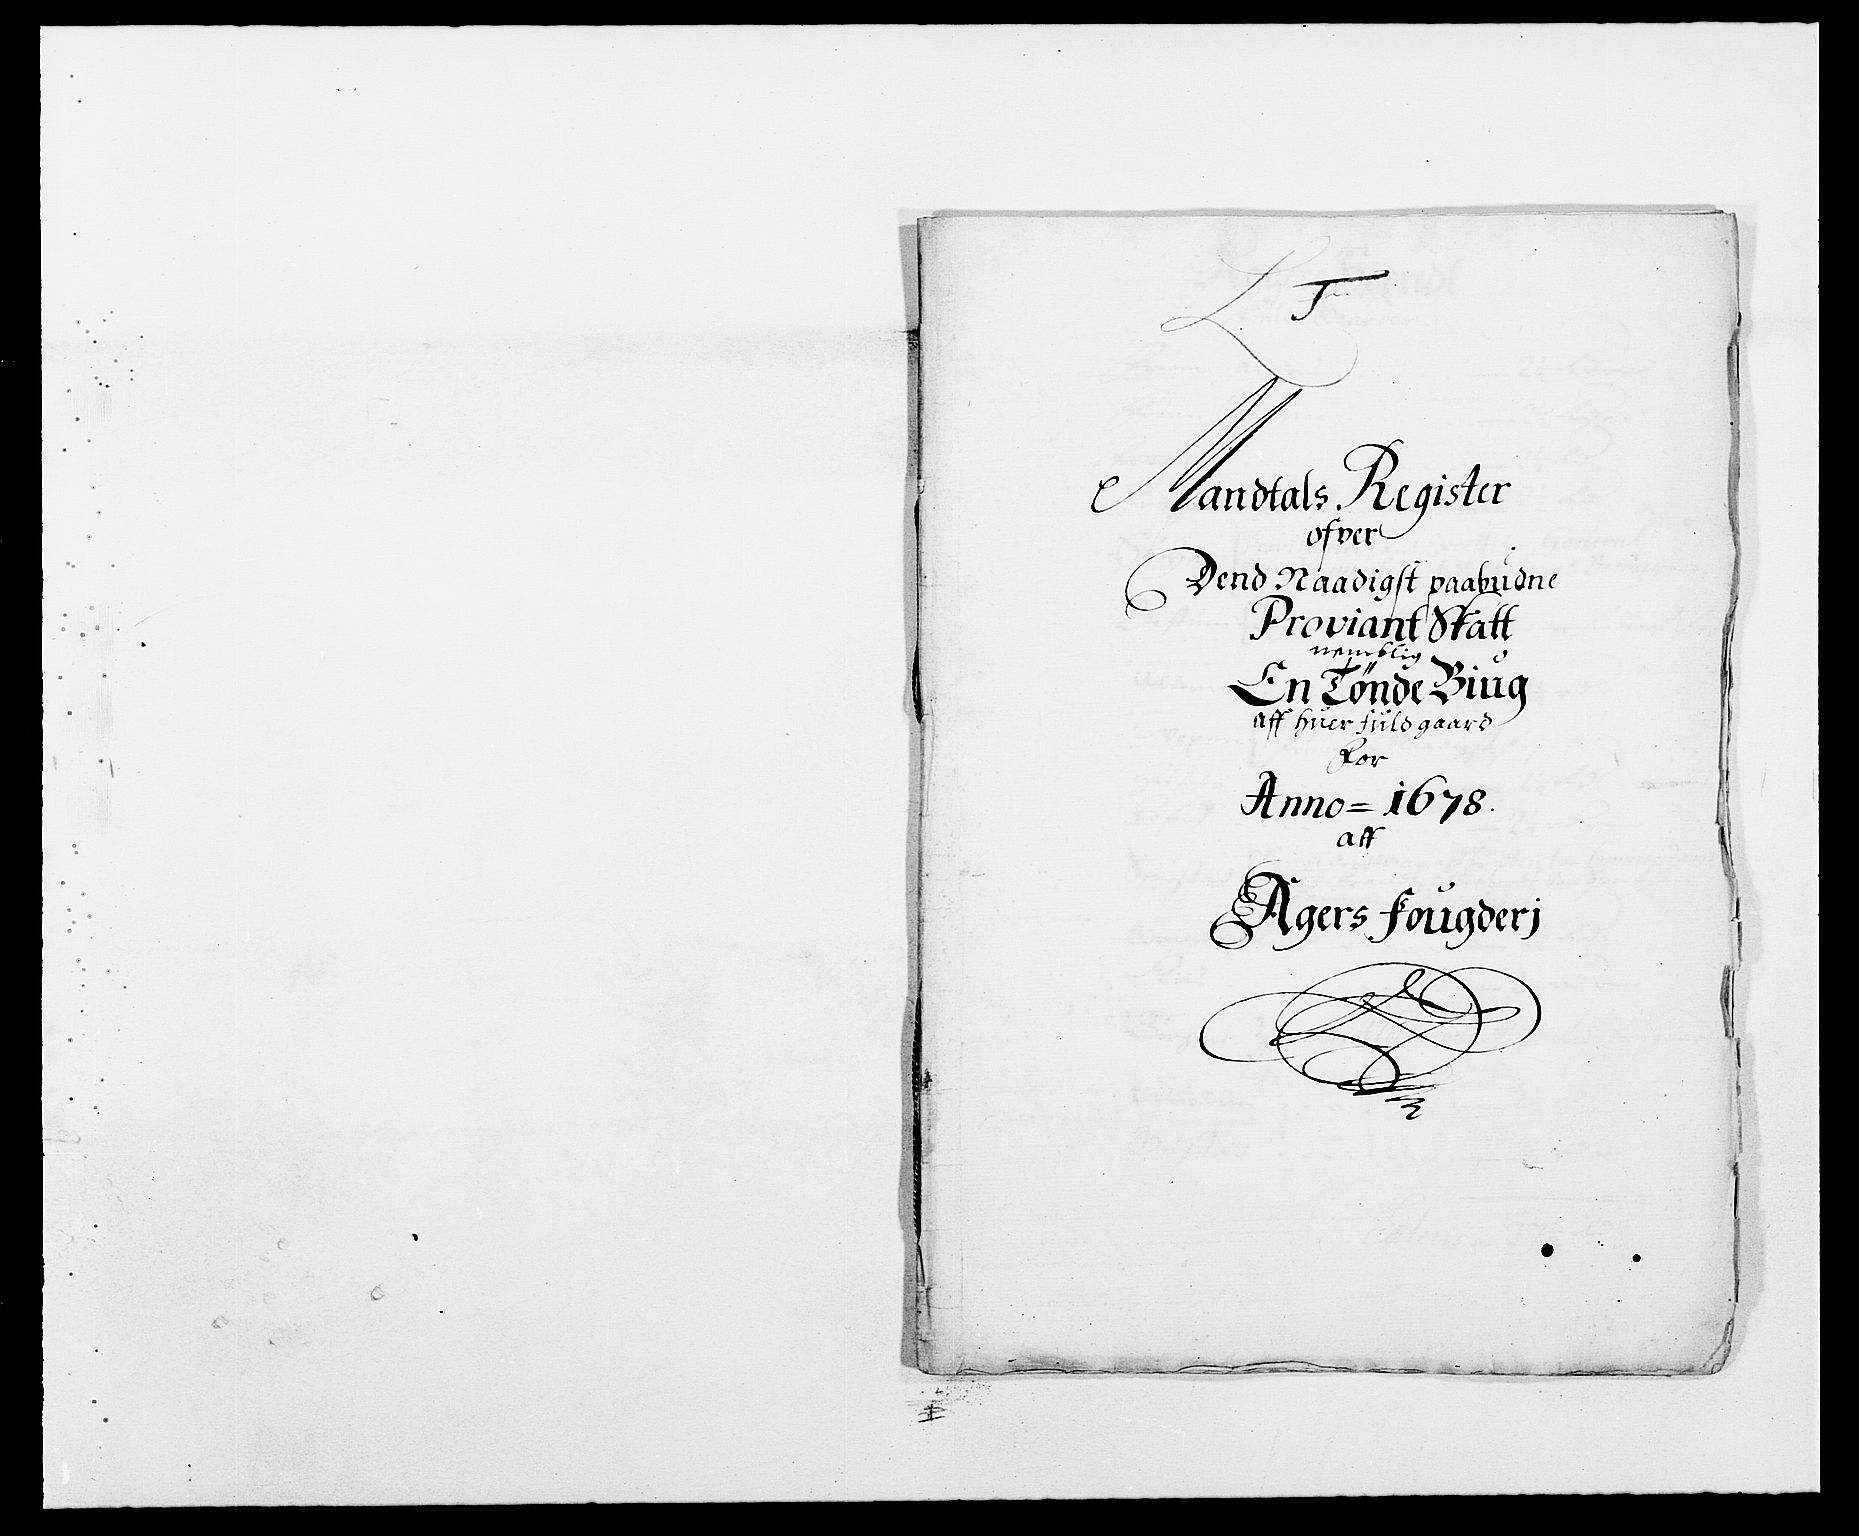 L T
Mandtals Register
ofver
Dend Naadigst paabudne
Proviant Skatt
nemblig
En Tönde Biug
aff huer fuld gaard
For
Anno= 1678.
aff
Agers Fougderj